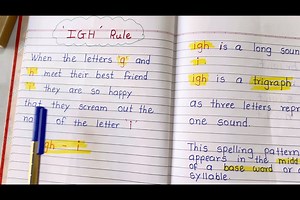 'IGH' Rule
When the letters 'g' and
'h' meet their best friend
'i' they are so happy
that they scream out the
name of the letter i
gh - i
igh is a long soun
i
igh is a trigraph
as three letters repr
one sound.
This spelling pattern
appears in the midd
of a base word or a
syllable.